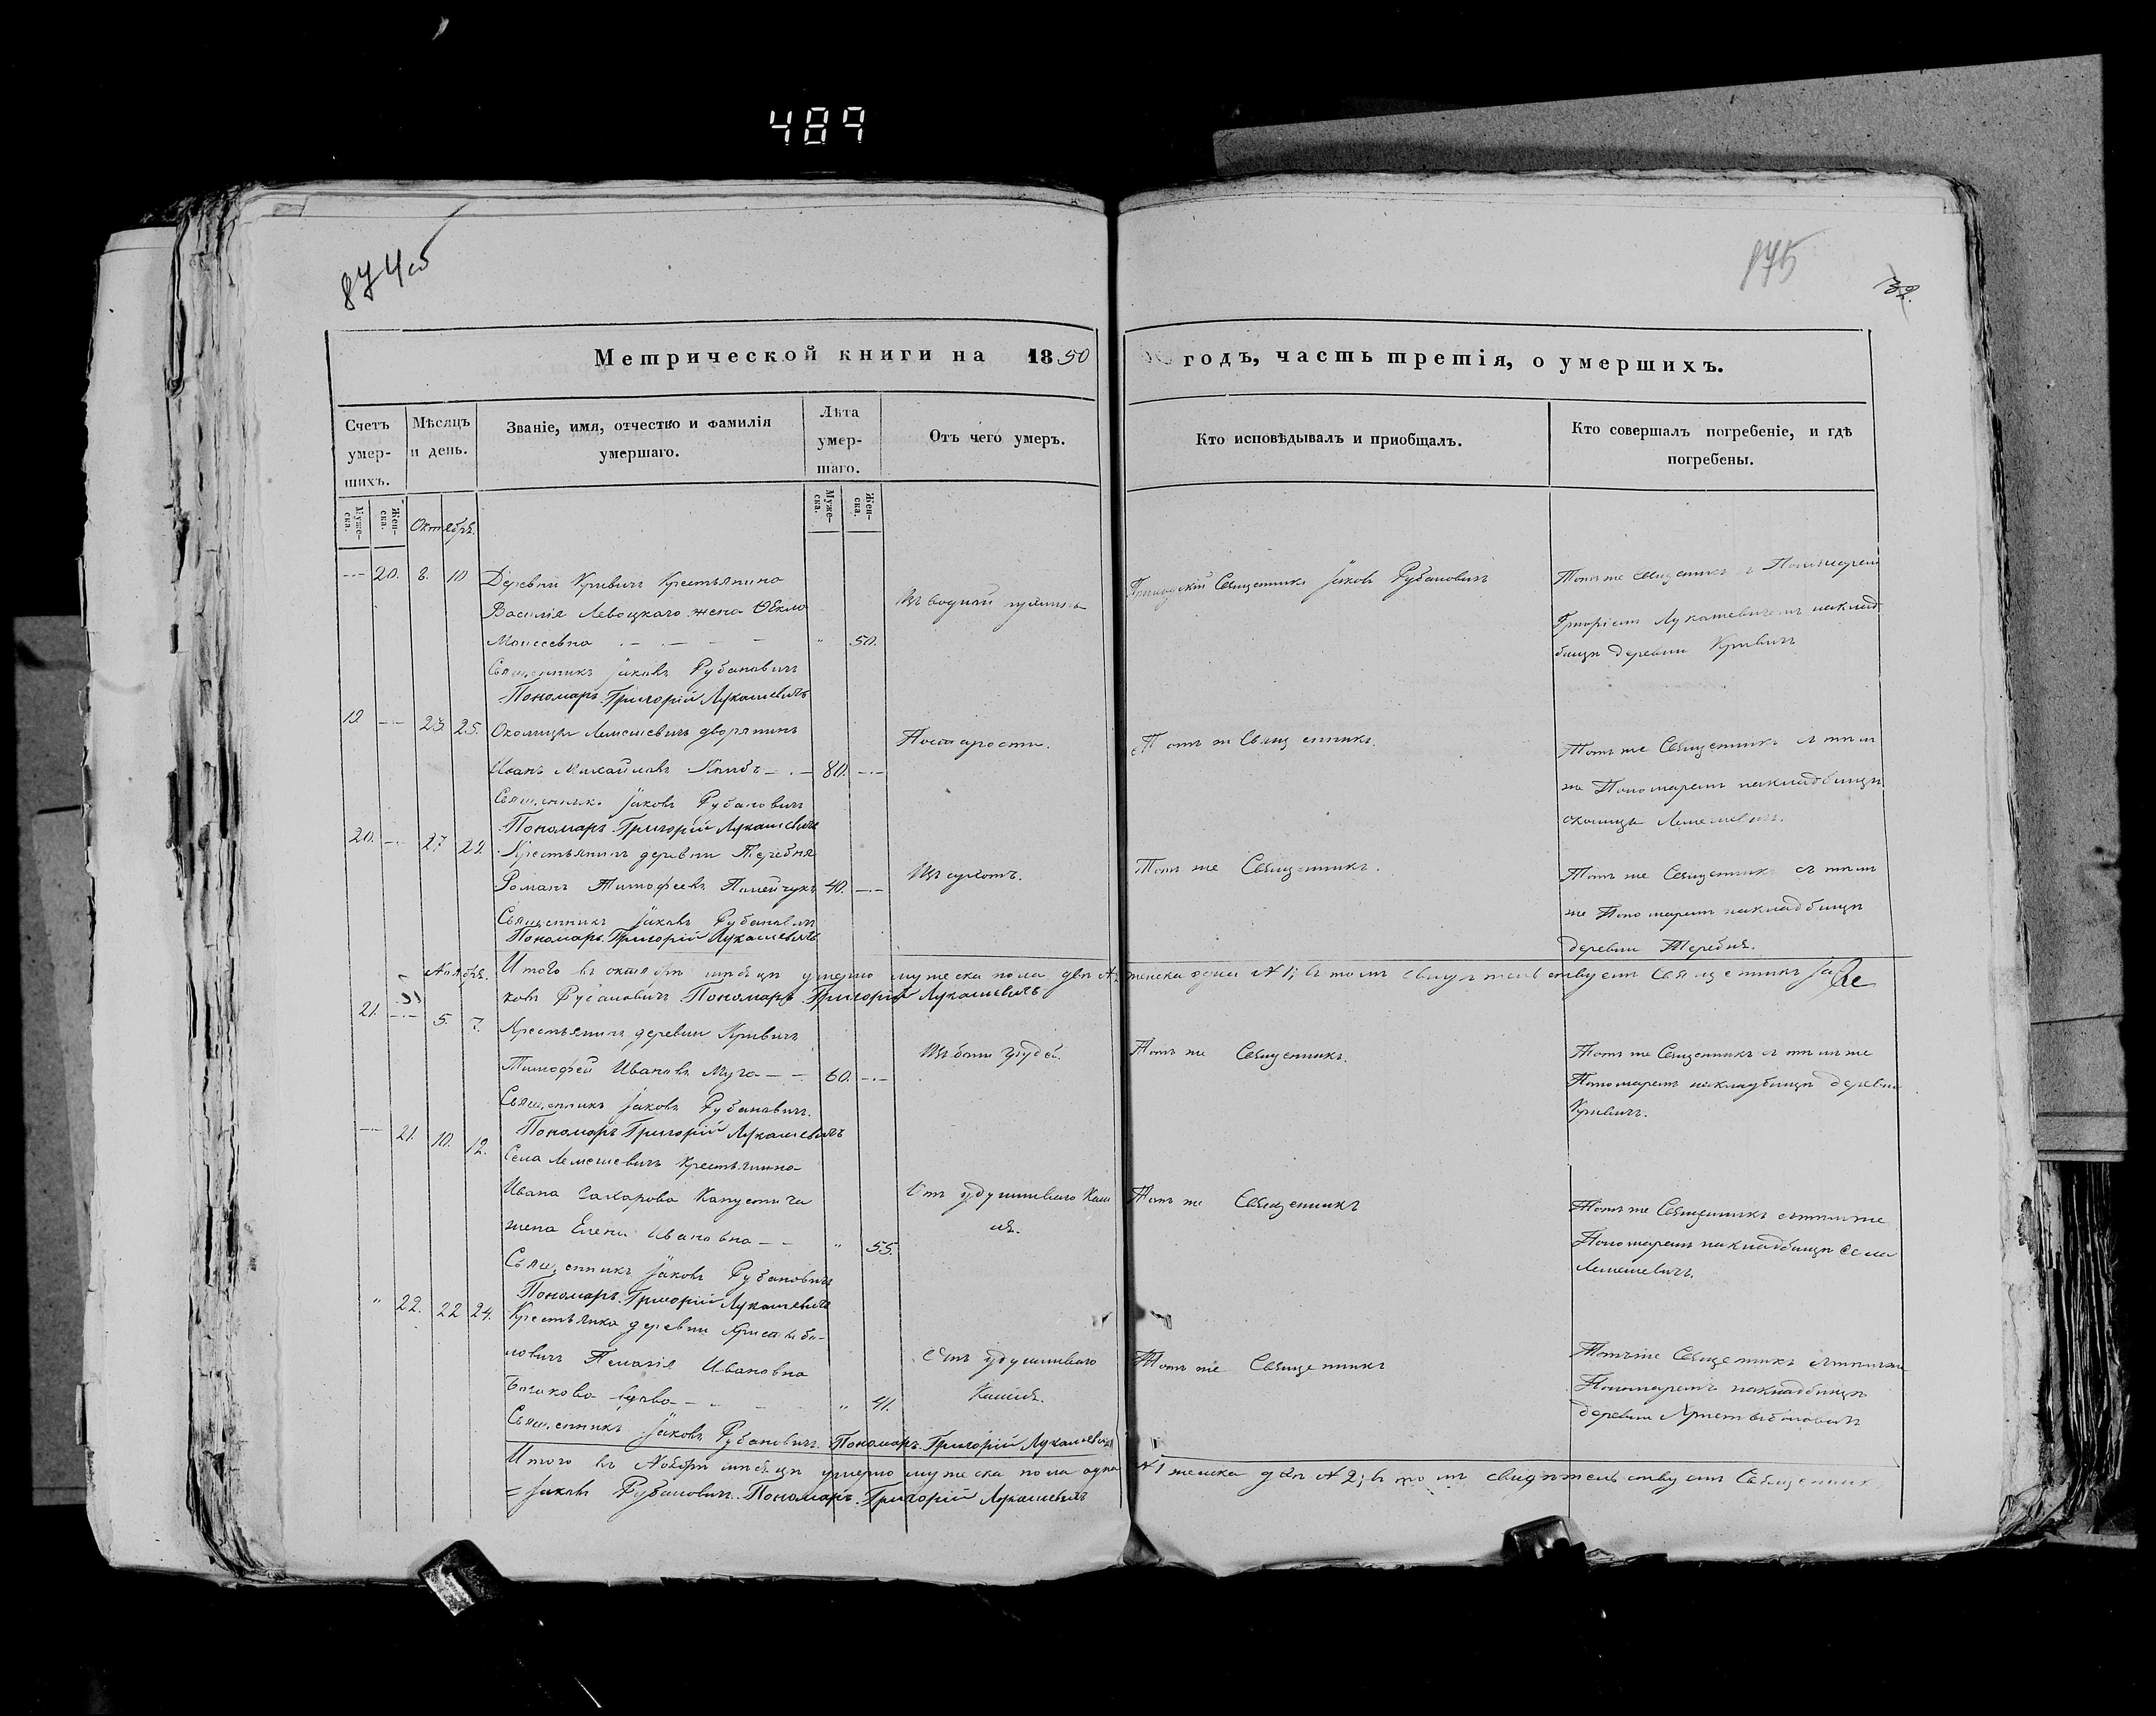 489
874об
175
32.
Метрической книги на 1850
годъ, часть третія, о умершихъ.
Счетъ умер-шихъ.
Мѣсяцъ и день.
Званіе, имя, отчество и фамилія умершаго.
Лѣта умер-шаго.
Отъ чего умеръ.
Кто исповѣдывалъ и приобщалъ.
Кто совершалъ погребеніе, и гдѣ погребены.
Муже-ска.
Жен-ска.
Октябрь.
Муже-ска.
Жен-ска.
20. 8. 10 Деревни Кривичъ Крестьянина
Василія Левоцкаго жена Ѳекла
Моисеевна 50.
Священникъ Іаковъ Рубановичъ
Пономарь Григорій Лукашевичъ
Приходскій Священникъ Іаковъ Рубановичъ
Тотъ же Священникъ съ Пономаремъ
Григоріемъ Лукашевичемъ на клад-
бищѣ деревни Кривичъ
19. 23 25. Околицы Лемешевичъ дворянинъ
Иванъ Михайловъ 80.
Священникъ Іаковъ Рубановичъ
Пономарь Григорій Лукашевичъ
По старости.
Тотъ же Священникъ.
Тотъ же Священникъ съ тѣмъ
же Пономаремъ на кладбищѣ
околицы Лемешевичъ.
20. 27 29. Крестьянинъ деревни Теребня
Романъ Тимофеевъ 40.
Священникъ Іаковъ Рубановичъ
Пономарь Григорій Лукашевичъ
Тотъ же Священникъ.
Тотъ же Священникъ съ тѣмъ
же Пономаремъ на кладбищѣ
деревни Теребня.
Ноябрь.
Итого въ октябрѣ мѣсяцѣ умерло мужеска пола два женска одна №1; въ томъ свидѣтельствуемъ Священникъ Іа
ковъ Рубановичъ Пономарь Григорій Лукашевичъ
21. 5. 7. Крестьянинъ деревни Кривичъ
Тимофей Ивановъ Муха 60.
Священникъ Іаковъ Рубановичъ.
Пономарь Григорій Лукашевичъ
Тотъ же Священникъ.
Тотъ же Священникъ съ тѣмъ же
Пономаремъ на кладбищѣ деревни
Кривичъ.
21. 10. 12. Села Лемешевичъ Крестьянина
Ивана Захарова
жена Елена Ивановна 55.
Священникъ Іаковъ Рубановичъ
Пономарь Григорій Лукашевичъ
Отъ удушливаго каш
ля.
Тотъ же Священникъ
Тотъ же Священникъ съ тѣмъ же
Пономаремъ на кладбищѣ села
Лемешевичъ.
22. 22 24. Крестьянка деревни
Пелагія Ивановна
вдова 41.
Священникъ Іаковъ Рубановичъ. Пономарь Григорій Лукашевичъ
Отъ удушливаго
Кашля.
Тотъ же Священникъ
Тотъ же Священникъ съ тѣмъ же
Пономаремъ на кладбищѣ
деревни
Итого въ Ноябрѣ мѣсяцѣ умерло мужеска пола одна №1 женска двѣ №2; въ томъ свидѣтельствуемъ Священникъ
Іаковъ Рубановичъ. Пономарь Григорій Лукашевичъ